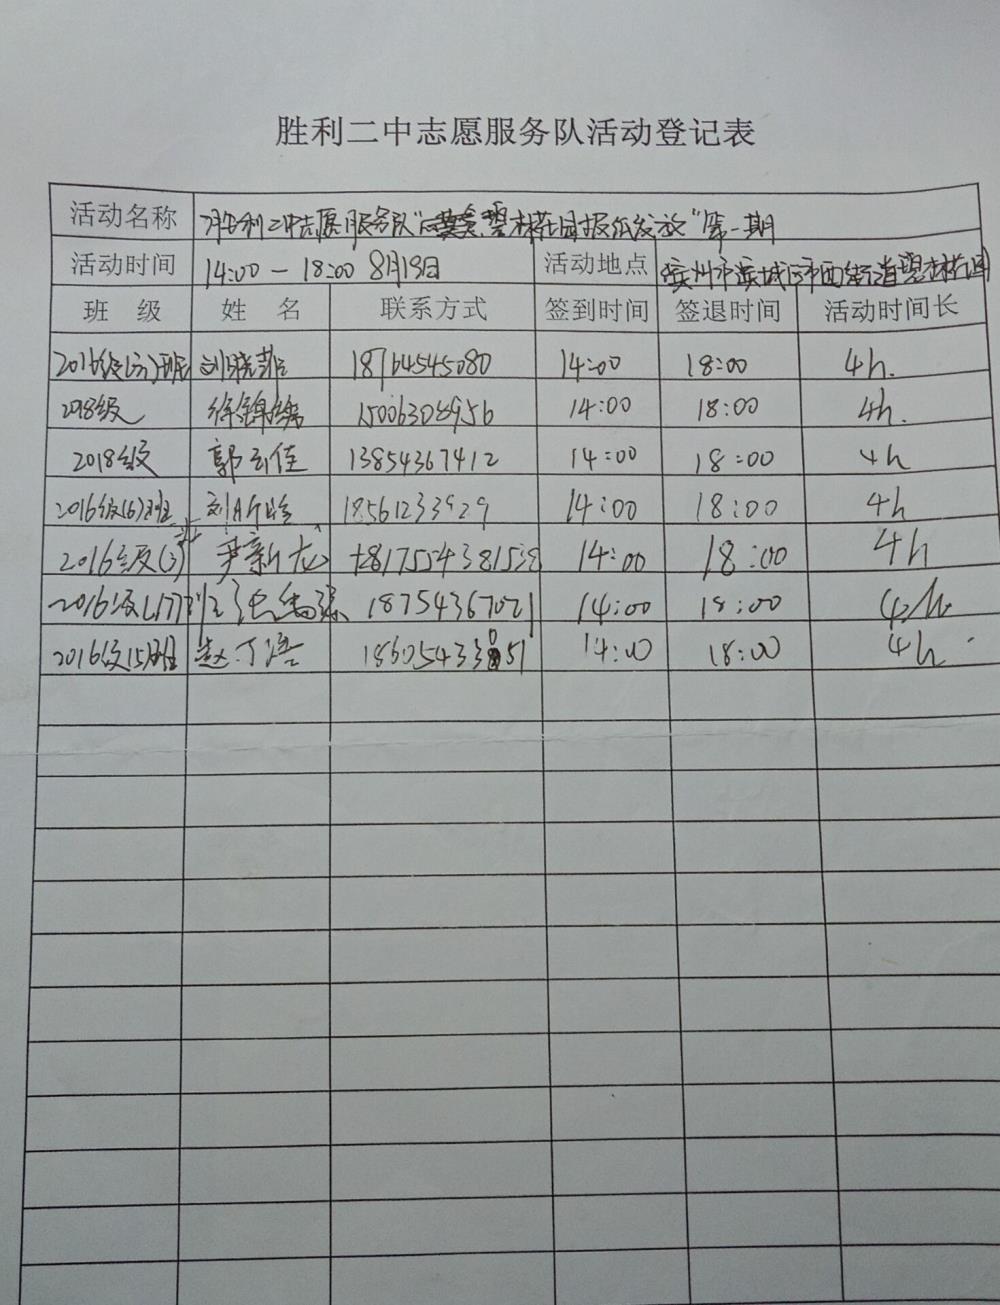 胜利二中志愿服务队活动登记表
活动名称 胜利二中志愿服务队“碧林花园报纸发放”第一期
活动时间 14:00-18:00 8月13日 活动地点 滨州市滨城区市西街道碧林花园
班 级 姓 名 联系方式 签到时间 签退时间 活动时间长
2016级(三)班 刘晓菲 18764545080 14:00 18:00 4h.
2018级 徐锦绣 15006308956 14:00 18:00 4h.
2018级 郭云佳 13854367412 14:00 18:00 4h
2016级(6)班 刘 18561233929 14:00 18:00 4h
2016级(3)班 尹新龙 14:00 18:00 4h
2016级(17)班 张 18754367021 14:00 18:00 4h
2016级15班 赵 14:00 18:00 4h